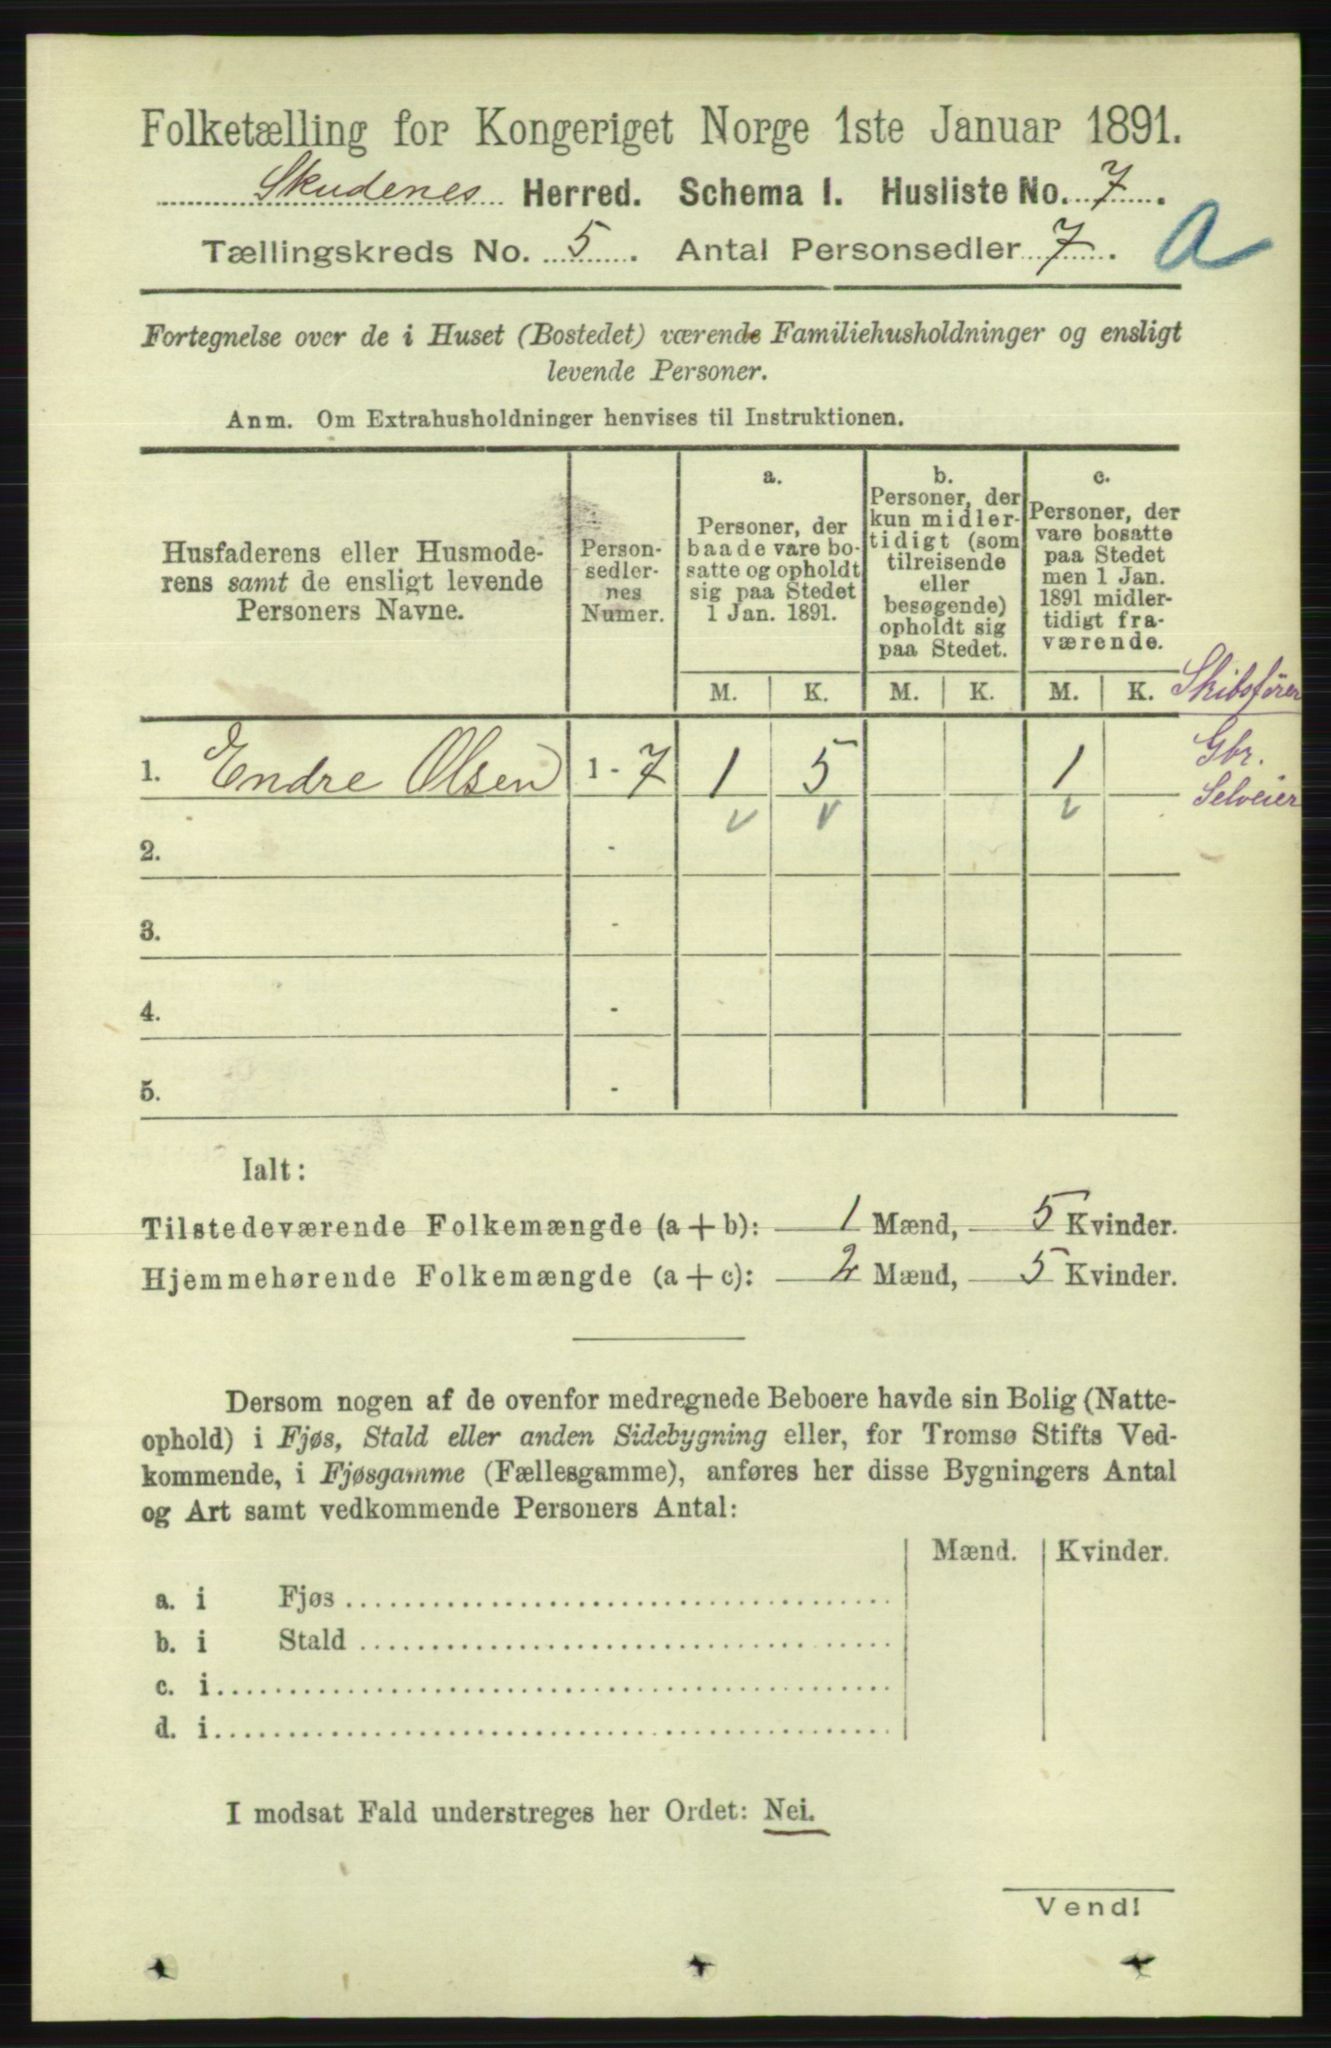 Folketælling for Kongeriget Norge 1ste Januar 1891.
Skudenes Herred. Schema I. Husliste No. 7.
Tællingskreds No. 5. Antal Personsedler 7. a
Fortegnelse over de i Huset (Bostedet) værende Familiehusholdninger og ensligt
levende Personer.
Anm. Om Extrahusholdninger henvises til Instruktionen.
Husfaderens eller Husmode-
rens samt de ensligt levende
Personers Navne.
Person-
sedler-
nes
Numer.
a.
Personer, der
baade vare bo-
satte og opholdt
sig paa Stedet
1 Jan. 1891.
b.
Personer, der
kun midler-
tidigt (som
tilreisende
eller
besøgende)
opholdt sig
paa Stedet.
c.
Personer, der
vare bosatte
paa Stedet
men 1 Jan.
1891 midler-
tidigt fra-
værende.
M. K. M. K. M. K. Skibsfører
1. Endre Olsen 1 - 7 1 5 1 Gbr.
Selveier
2. -
3. -
4. -
5. -
Ialt:
Tilstedeværende Folkemængde (a + b): 1 Mænd, 5 Kvinder.
Hjemmehørende Folkemængde (a + c): 2 Mænd, 5 Kvinder.
Dersom nogen af de ovenfor medregnede Beboere havde sin Bolig (Natte-
ophold) i Fjøs, Stald eller anden Sidebygning eller, for Tromsø Stifts Ved-
kommende, i Fjøsgamme (Fællesgamme), anføres her disse Bygningers Antal
og Art samt vedkommende Personers Antal:
Mænd. Kvinder.
a. i Fjøs
b. i Stald
c. i
d. i
I modsat Fald understreges her Ordet: Nei.
Vend!